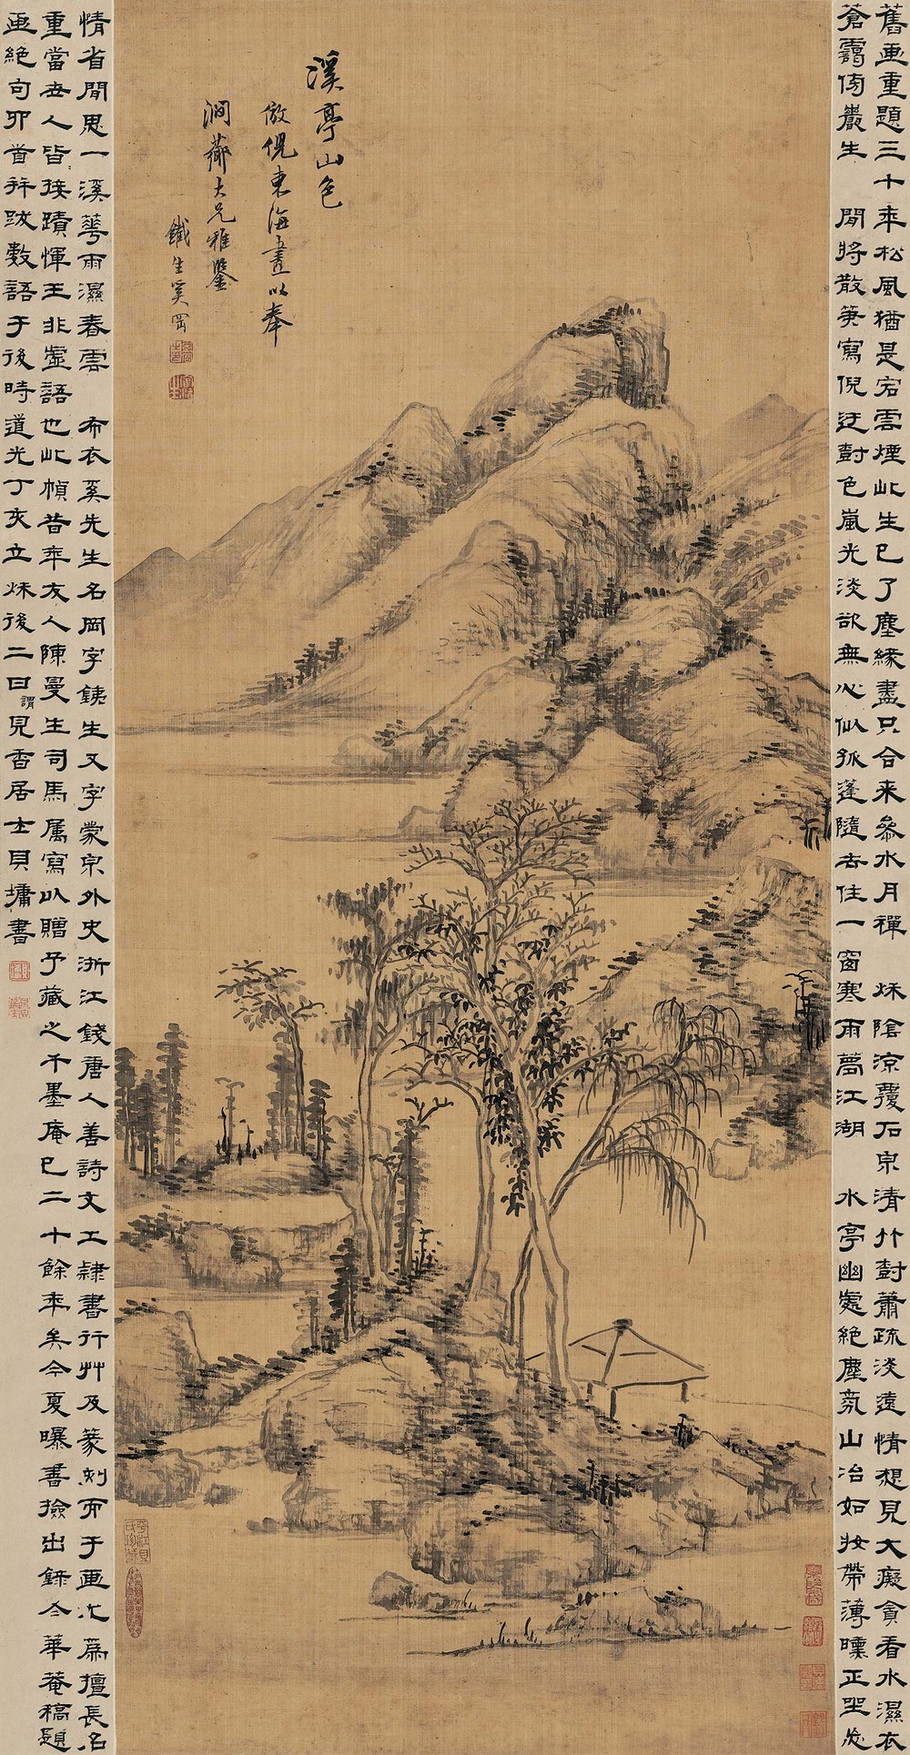 舊画重題三十年松風猶是宕雲煙此生已了塵緣盡只合来參水月禪 秌陰涼覆石泉清竹樹蕭疏淡遠情想見大癡貪看水濕衣
蒼靄倚巖生 閒將散筆寫倪迂樹色嵐光淡欲無心似孤蓬隨去住一窗寒雨夢江湖 水亭幽處絕塵氛山冶如妝帶薄曛正坐忘
溪亭山色
倣倪東海畫以奉
澗薌大兄雅鑒
鐵生奚岡
情省閒思一溪華雨濕春雲 布衣奚先生名岡字銕生又字蒙泉外史浙江錢唐人善詩文工隸書行艸及篆刻而于画尤為擅長名
重當世人皆接蹟惲王非虛語也此幀昔年友人陳曼生司馬屬寫以贈予藏之千墨庵已二十餘年矣今夏曝書撿出錄冬華菴稿題
画絕句卯首并跋數語于後時道光丁亥立秌後二日謂見香居士貝墉書